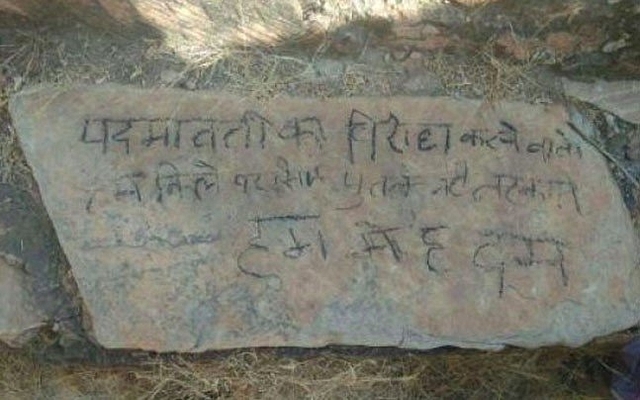 पदमावती का विरोध करने वाले
हम किले पर सिर्फ पुतले नहीं लटकाते
हम में है दम